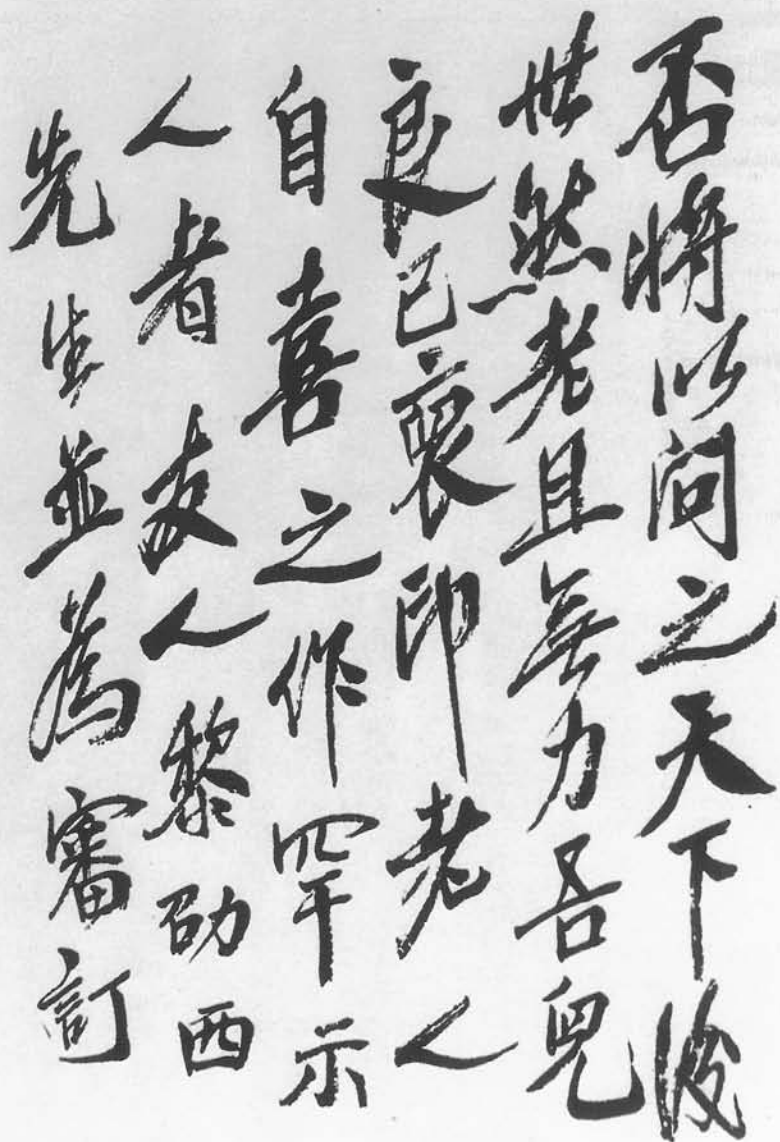 否將以問之天下後
世然老且無力吾兒
良已裒印老人
自喜之作罕示
人者友人黎劭西
先生並為審訂